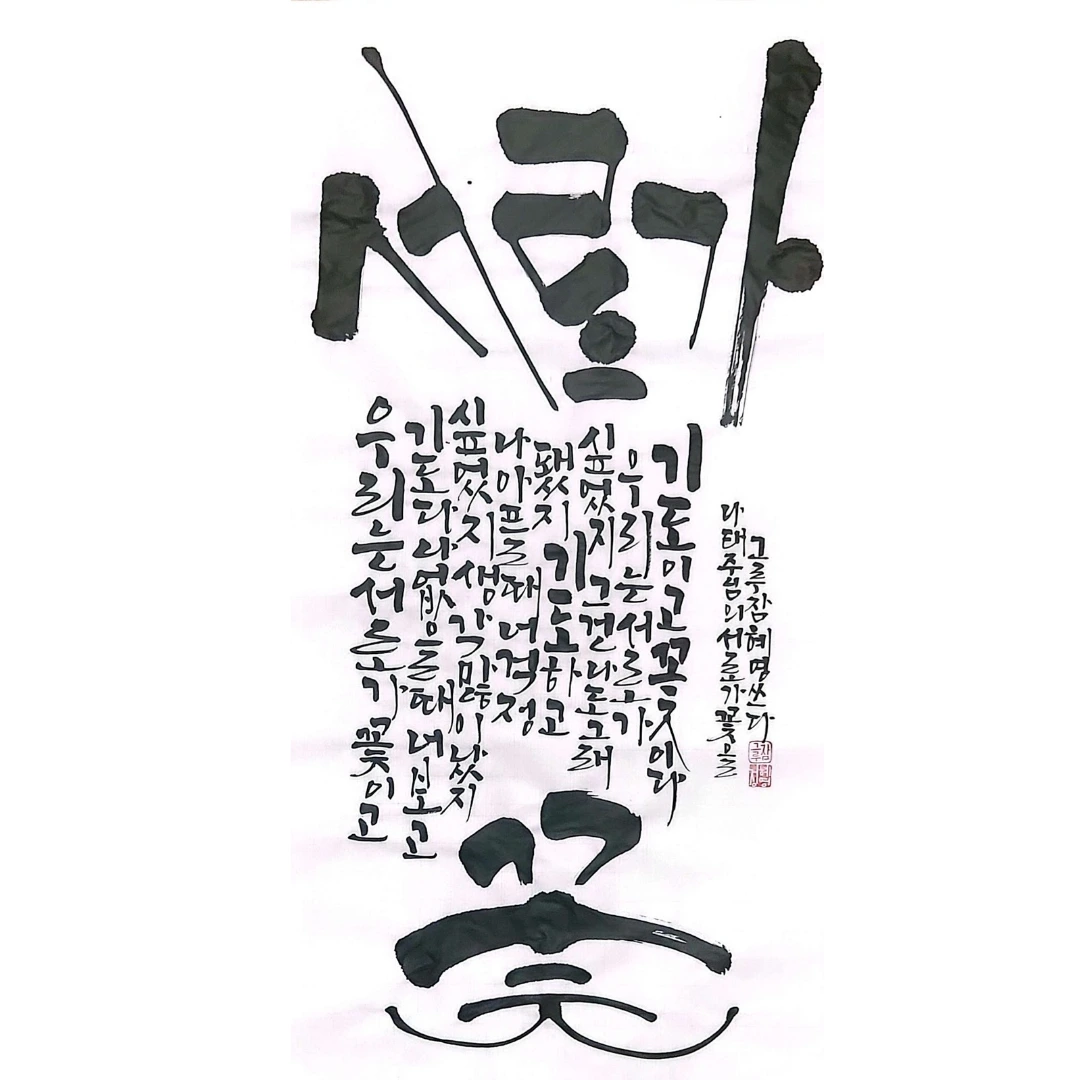 서로가
우리는 서로가 꽃이고
기도다 나 없을 때 너 보고
싶었지 생각 많이 났지
나 아플 때 너 걱정
됐지 기도하고
싶었지 그건 나도 그래
우리는 서로가
기도이고 꽃이다
꽃
나태주님의 서로가 꽃을
그루잠 혜명 쓰다